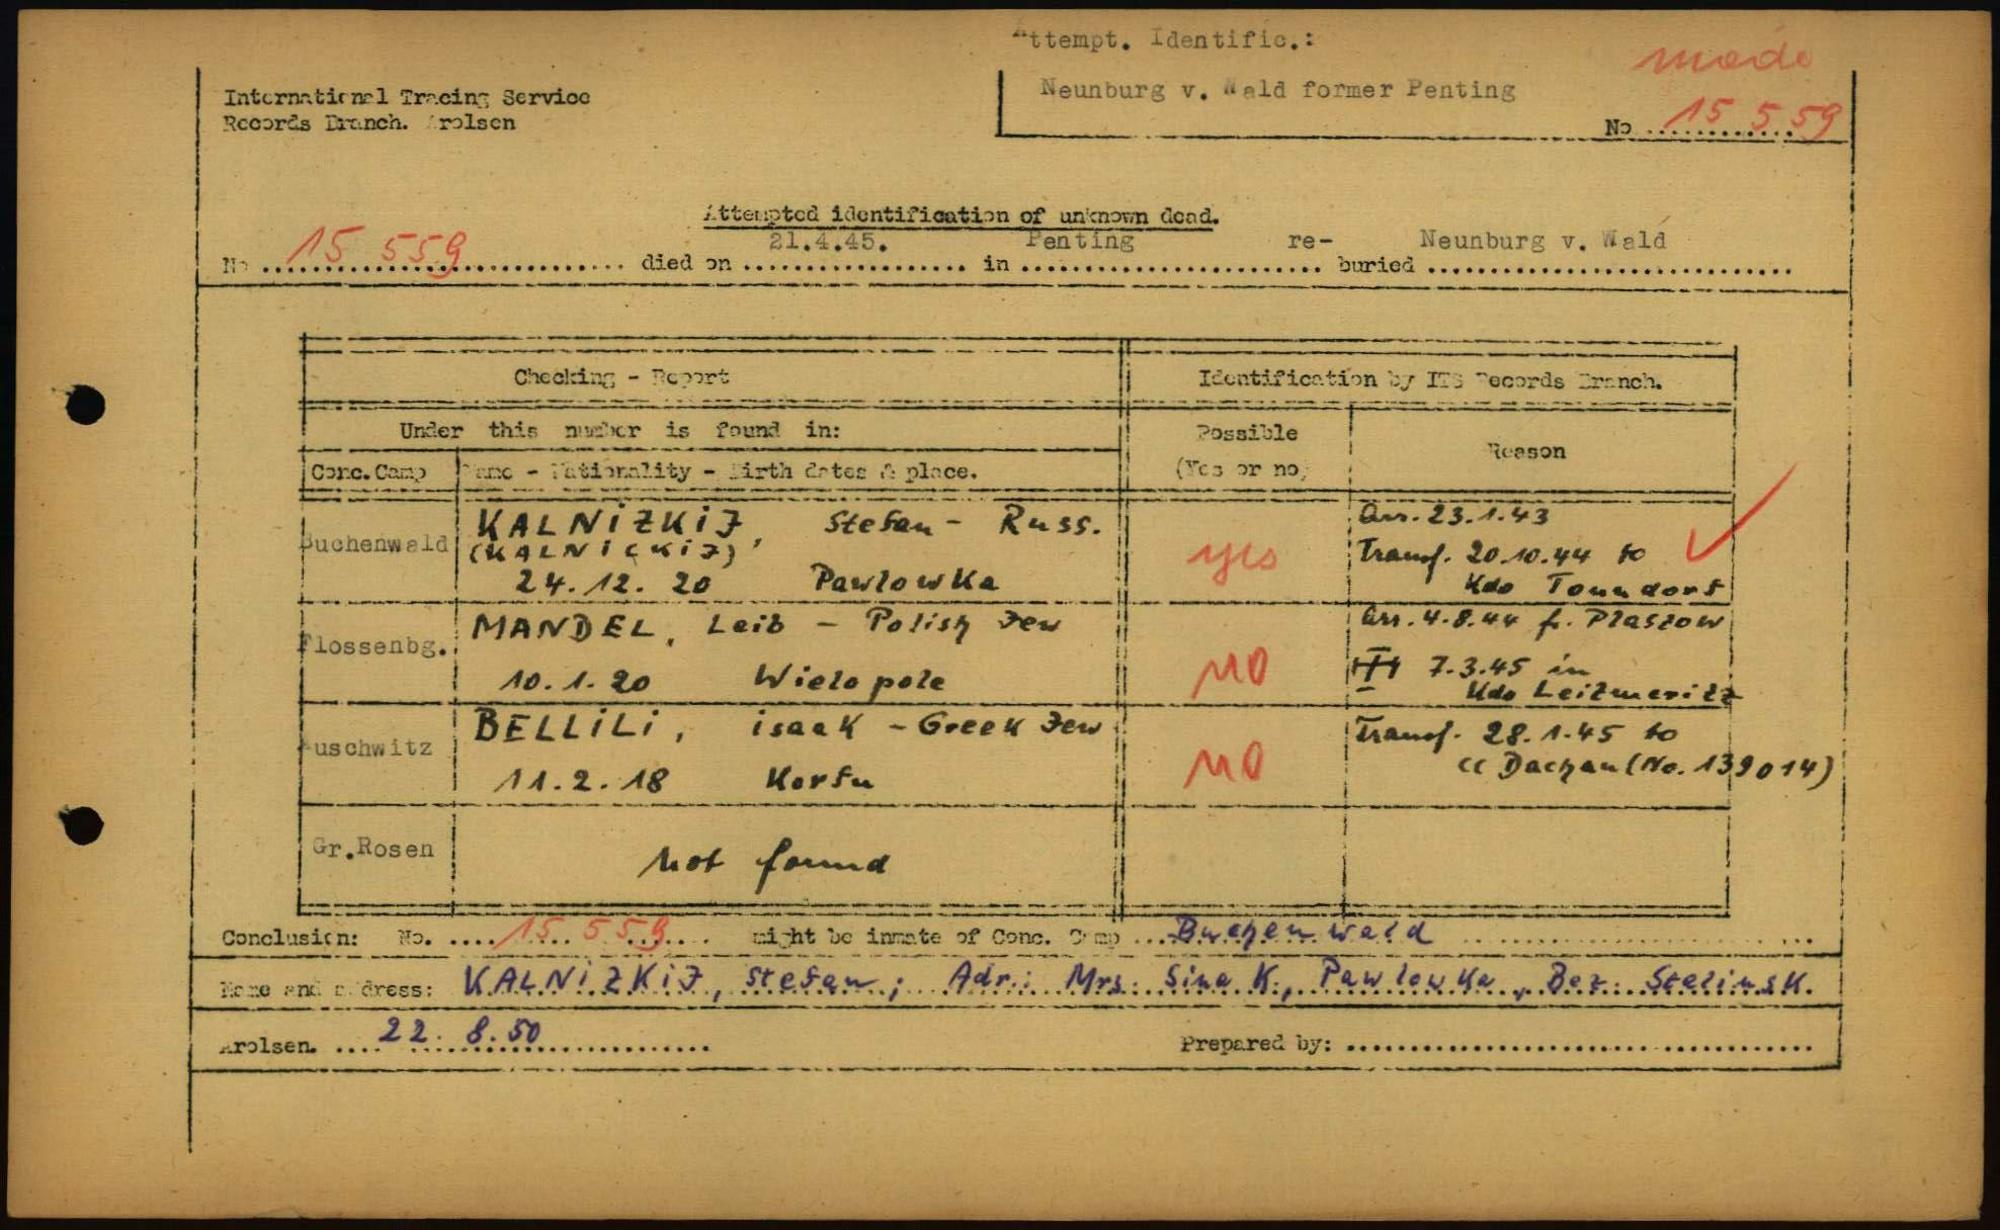 Attempt. Identific.:
made
Neunburg v. Wald former Penting
No ............ 15 5 59
International Tracing Service
Records Branch. Arolsen
Attempted identification of unknown dead.
No 15 559 died on 21.4.45. in Penting re-buried Neunburg v. Wald
Checking - Report
Identification by ITS Records Branch.
Under this number is found in:
Possible
(Yes or no)
Reason
Conc.Camp
Name - Nationality - Birth dates & place.
Buchenwald
KALNIZKIJ, Stefan - Russ.
(KALNICKIJ)
24.12. 20 Pawlowka
yes
Arr. 23.1.43
Transf. 20.10.44 to
Kdo Tonndorf
Flossenbg.
MANDEL, Leib - Polish Jew
10.1.20 Wielopole
NO
Arr. 4.8.44 f. Plaszow
7.3.45 in
Kdo Leitmeritz
Auschwitz
BELLILI, isaak - Greek Jew
11.2.18 Korfu
NO
Transf. 28.1.45 to
cc Dachau (No. 139014)
Gr.Rosen
not found
Conclusion: No. 15 559 might be inmate of Conc. Camp Buchenwald
Name and address: KALNIZKIJ, Stefan; Adr.: Mrs. Sina K., Pawlowka, Bez. Stalinsk.
Arolsen. 22. 8.50
Prepared by: